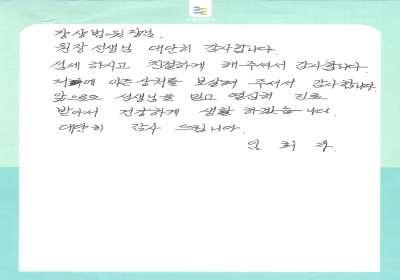 강상범 원장님.
원장 선생님 대단히 감사합니다.
섬세 하시고 친절하게 해 주셔서 감사합니다.
저의 아픈 상처를 보살펴 주셔서 감사합니다.
앞으로도 선생님을 믿고 열심히 진료
받아서 건강하게 생활 하겠습니다.
대단히 감사 드립니다.
임 희